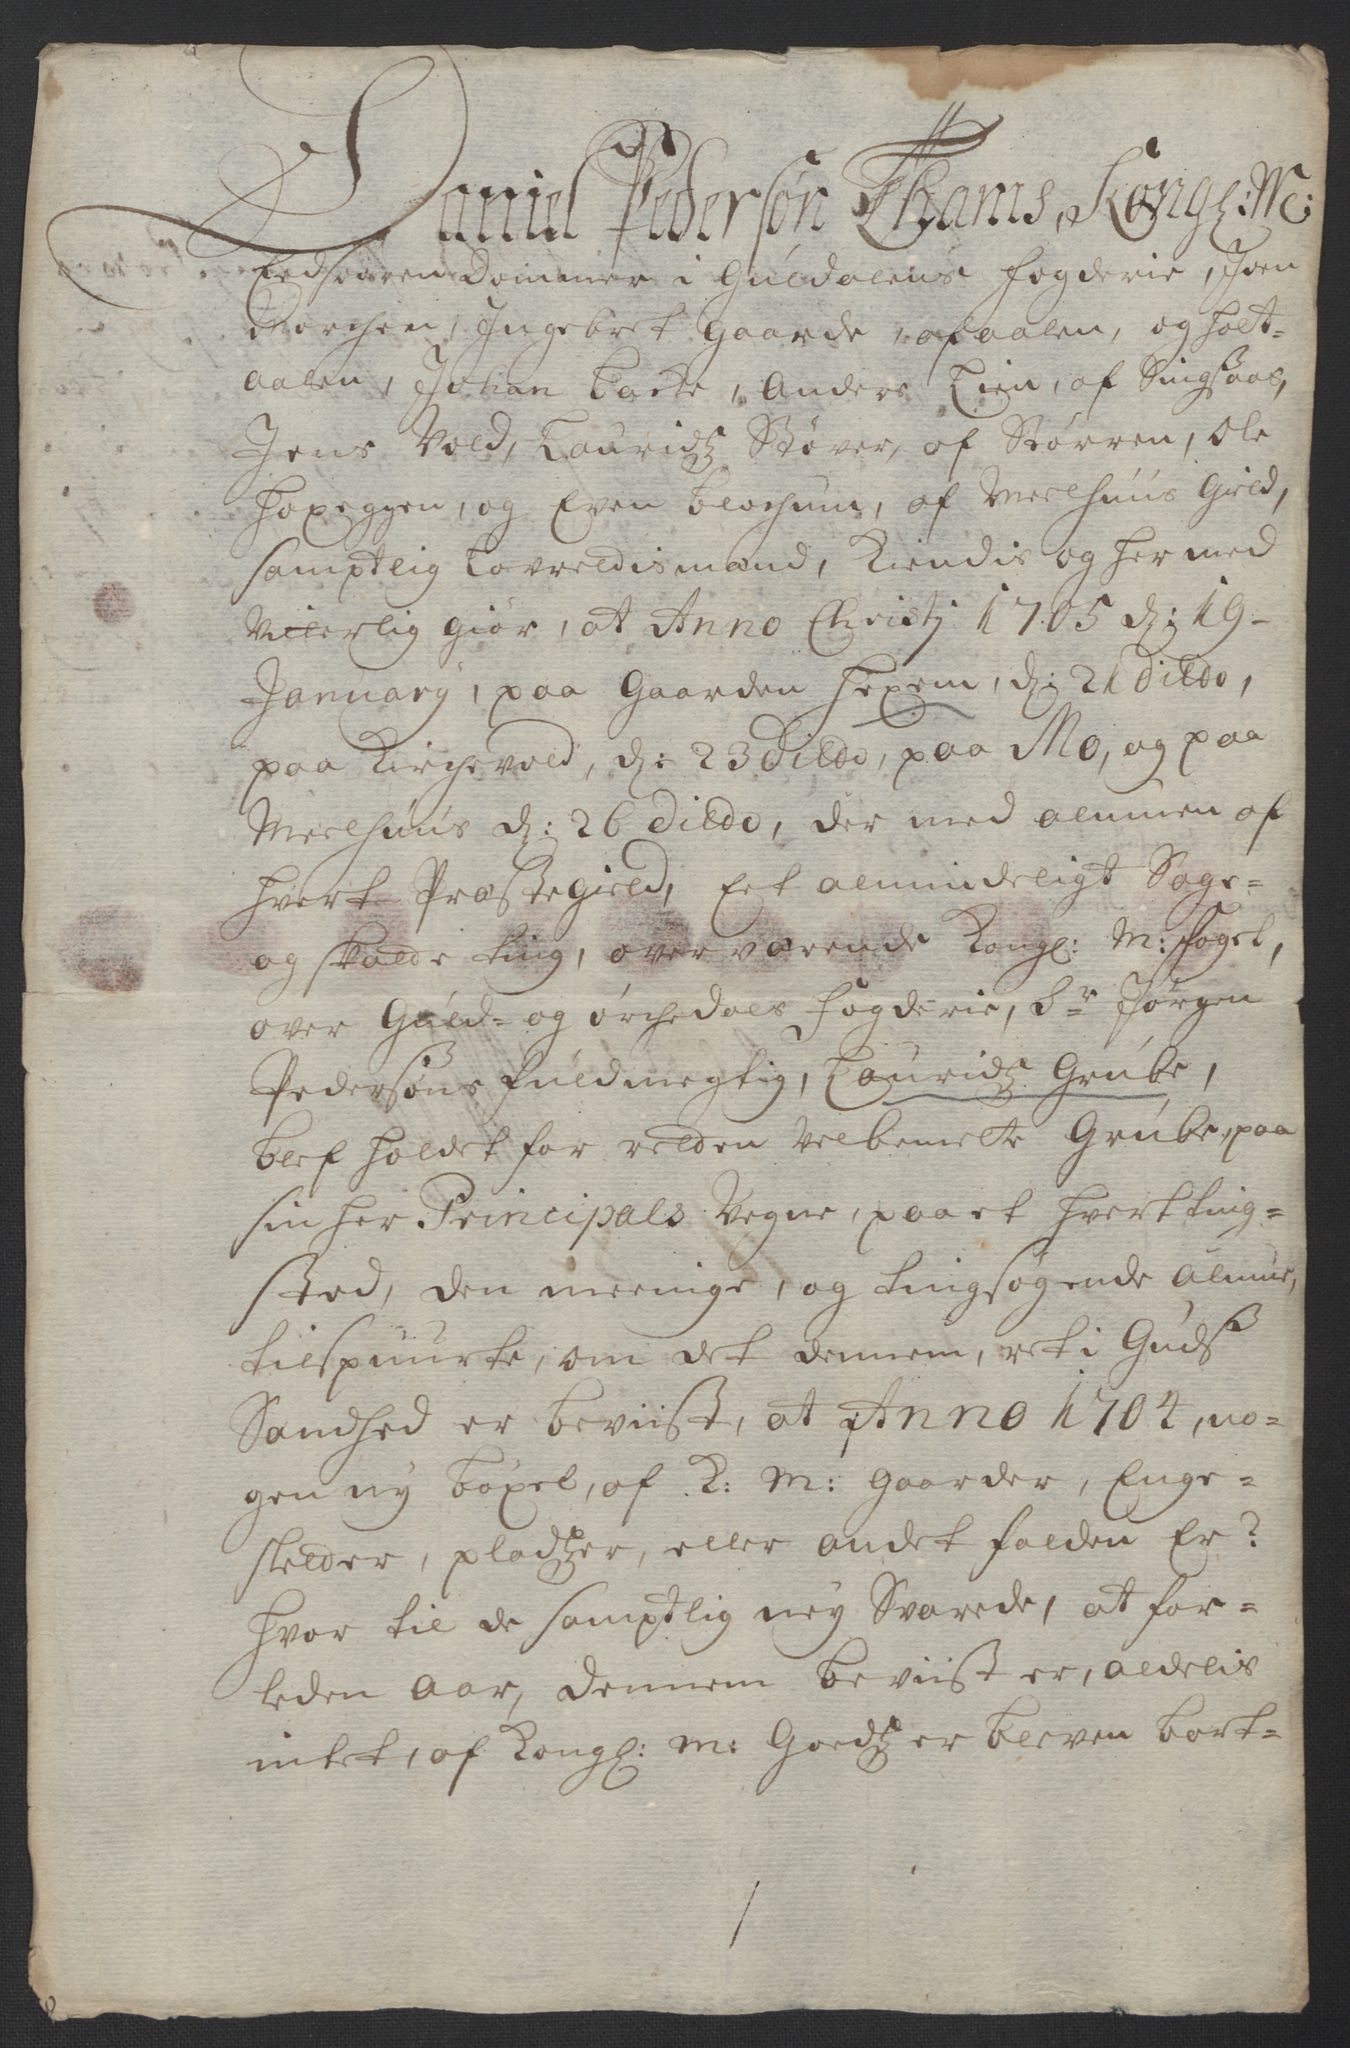 Daniel Pedersøn Thams, Kongl: M:
Eedsvoren Dommer i Guldalens fogderie, Joen
Morchen, Ingebret Gaarde, af Aalen, og Holt-
aalen, Johan Barte, Anders Lien, af Singsaas,
Jens Vold, Lauridtz Støver, af Størren, Ole
Hoxeggen, og Even Blochum, af Meelhuus Gield,
samptlig Lavrettismænd, Kiendis og her med
Vitterlig giør, at Anno Christj 1705 d: 19-
January, paa Gaarden Hexem, d: 21 Dito,
paa Kirchevold, d: 23 Ditto, paa Mo, og paa
Meelhuus d: 26 Ditto, der med almuen af
hvert Præstegield, Eet almindeligt Sage-
og skatte ting, over værende Kongl: M: foget,
over Guld- og Ørchedals fogderie, Sr Jørgen
Pedersøns fuldmegtig, Lauridtz Grube,
blef holdet for retten velbemelte Grube, paa
sin her Principals Vegne, paa et hvert ting-
sted, den meenige, og tingsøgende Almue,
tilspuurte, om det dennem, ret i Guds
Sandhed er beviist, at Anno 1704, no-
gen ny bøxel, af K: M: Gaarder, Enge-
sletter, pladtzer, eller andet falden Er?
hvor til de samptlig ney Svarede, at for-
leden Aar, dennem beviist er, aldelis
intet, af Kongl: M: Goedtz er bleven bort-
1